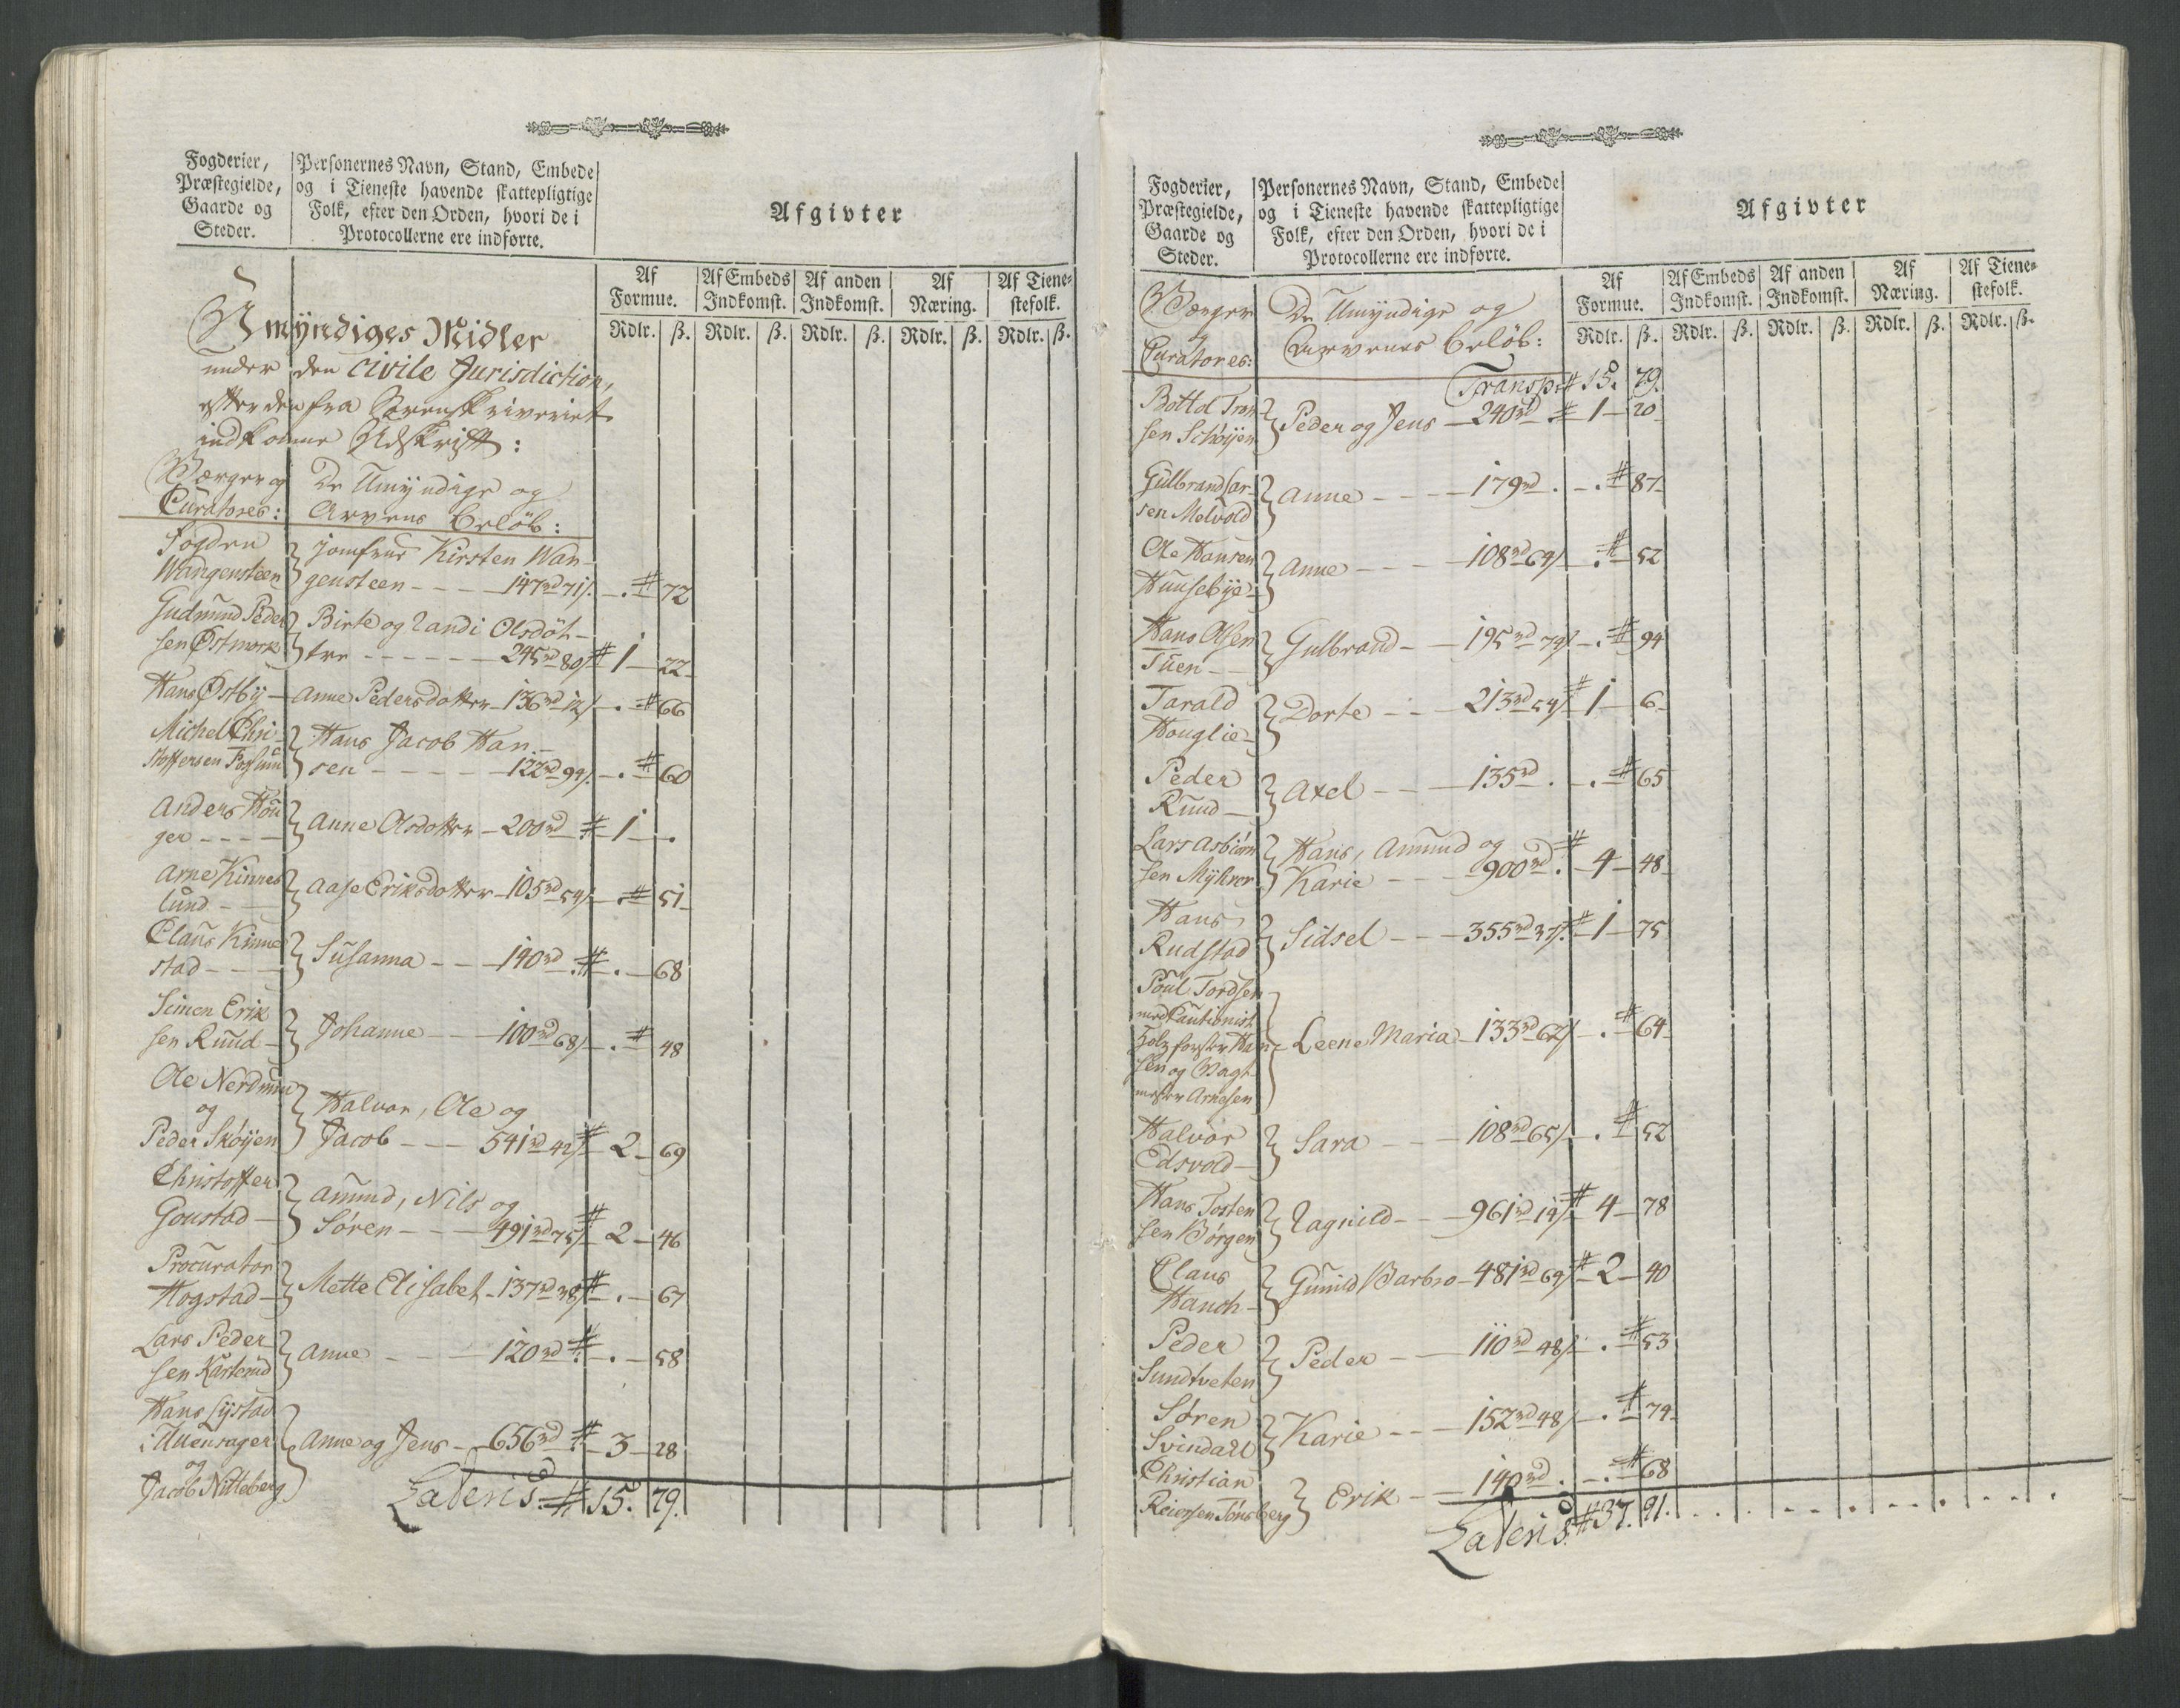 Fogderier,
Præstegielde,
Gaarde og
Steder.
Personernes Navn, Stand, Embede
og i Tieneste havende skattepligtige
Folk, efter den Orden, hvori de i
Protocollerne ere indførte.
Afgivter
Af Formue.
Af Embeds Indkomst.
Af anden Indkomst.
Af Næring.
Af Tienestefolk.
Rdlr. ß. Rdlr. ß. Rdlr. ß. Rdlr. ß. Rdlr. ß.
Umÿndiges Midler
under den civile Jurisdiction,
efter den fra Sorenskriveriet
indkomne Udskrift:
Værger og De Umÿndige og
Curatores: Arvens Beløb:
Fogden Jomfrue Kirsten Wan-
Wangensteen gensteen - - - - 147rd 71ß. - . # 72
Gudmund Peder Birte og Randi Olsdøt-
sen Østmork tre - - - - - - 245rd 80ß # 1 - 22
Hans Østbÿ - Anne Pedersdotter - 136rd 12ß - . # 66
Michel Chri- Hans Jacob Han-
stoffersen Fossum sen - - - - - 122rd 94ß. - . # 60
Anders Hou
ger - - - - Anne Olsdotter - 200rd . # 1 - .
Arne Kinnes
lund - - Aase Eriksdotter - 105rd 54ß - . # 51
Claus Kinne
stad - - - Susanna - - - 140rd . # - . - 68
Simen Erik
sen Ruud - Johanne - - - 100rd 68ß - . # 48
Ole Nerdrum
og Halvor, Ole og
Peder Skøÿen Jacob - - - 541rd 42ß # 2 - 69
Christoffer Amund, Nils og
Goustad - Søren - - - 491rd 75ß # 2 - 46
Procurator
Hogstad - Mette Elisabet - 137rd 38ß # - . - 67
Lars Peder
sen Karterud Anne - - - 120rd . # - . - 58
Hans Lÿstad
i Ullensager Anne og Jens - 656rd . # - 3 - 28
og
Jacob Nitteberg
Lateris # 15. 79.
Fogderier,
Præstegielde,
Gaarde og
Steder.
Personernes Navn, Stand, Embede
og i Tieneste havende skattepligtige
Folk, efter den Orden, hvori de i
Protocollerne ere indførte.
Afgivter
Af Formue.
Af Embeds Indkomst.
Af anden Indkomst.
Af Næring.
Af Tienestefolk.
Rdlr. ß. Rdlr. ß. Rdlr. ß. Rdlr. ß. Rdlr. ß.
Værger De Umÿndige og
og
Curatores: Arvenes Beløb:
Transp: # 15. 79.
Peder og Jens - 240rd . # 1 - 20
sen Schøÿen
Gulbrand Lar-
sen Melvold Anne - - - - 179rd . - . # 87
Ole Hansen
Huusebÿe - Anne - - - - 108rd 64ß - . # 52
Hans Olsen
Tuen - - Gulbrand - - 195rd 74ß - . # 94
Tarald
Houglie - Dorte - - - 213rd 54ß # 1 - 6
Peder
Ruud - Axel - - - 135rd . - . # 65
Lars Asbiørn Hans, Amund og
sen Mÿhrer Karie - - - 900rd . # 4 - 48
Hans
Rudstad Sidsel - - - 355rd 37ß. # 1 - 75
Poul Tordsen
med Cautionist
Leene Maria - 133rd 62ß - . # 64
sen og Vagt-
mester Arnesen
Halvor
Edsvold - Sara - - - 108rd 65ß - . # 52
Hans Tosten
sen Børgen Ragnild - - - 961rd 19ß # 4 - 78
Claus
Hanch - Gunild Barbro - 481rd 69ß # 2 - 40
Peder
Sundtveten Peder - - - 110rd 48ß - . # 53
Søren
Svindall Karie - - - 152rd 48ß - . # 74
Christian
Reiersen Tønsberg Erik - - 140rd . - . # 68
Lateris # 37. 91.